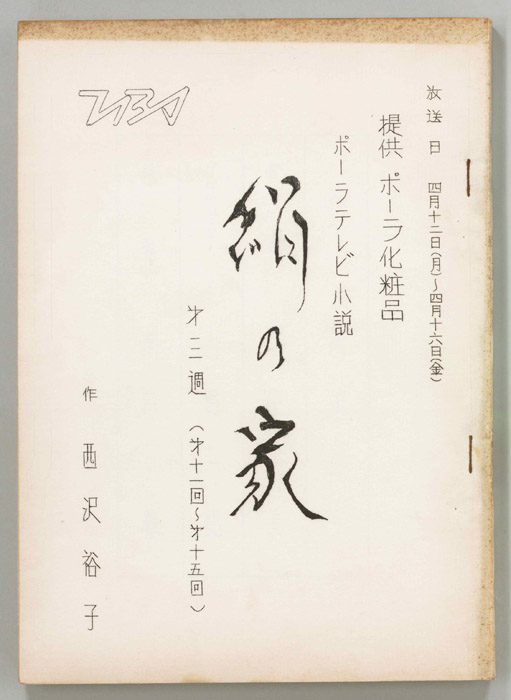 放送日 四月十二日(月)〜四月十六日(金)
提供 ポーラ化粧品
ポーラテレビ小説
絹の家
才三週 (才十一回〜才十五回)
作 西沢裕子
TBS